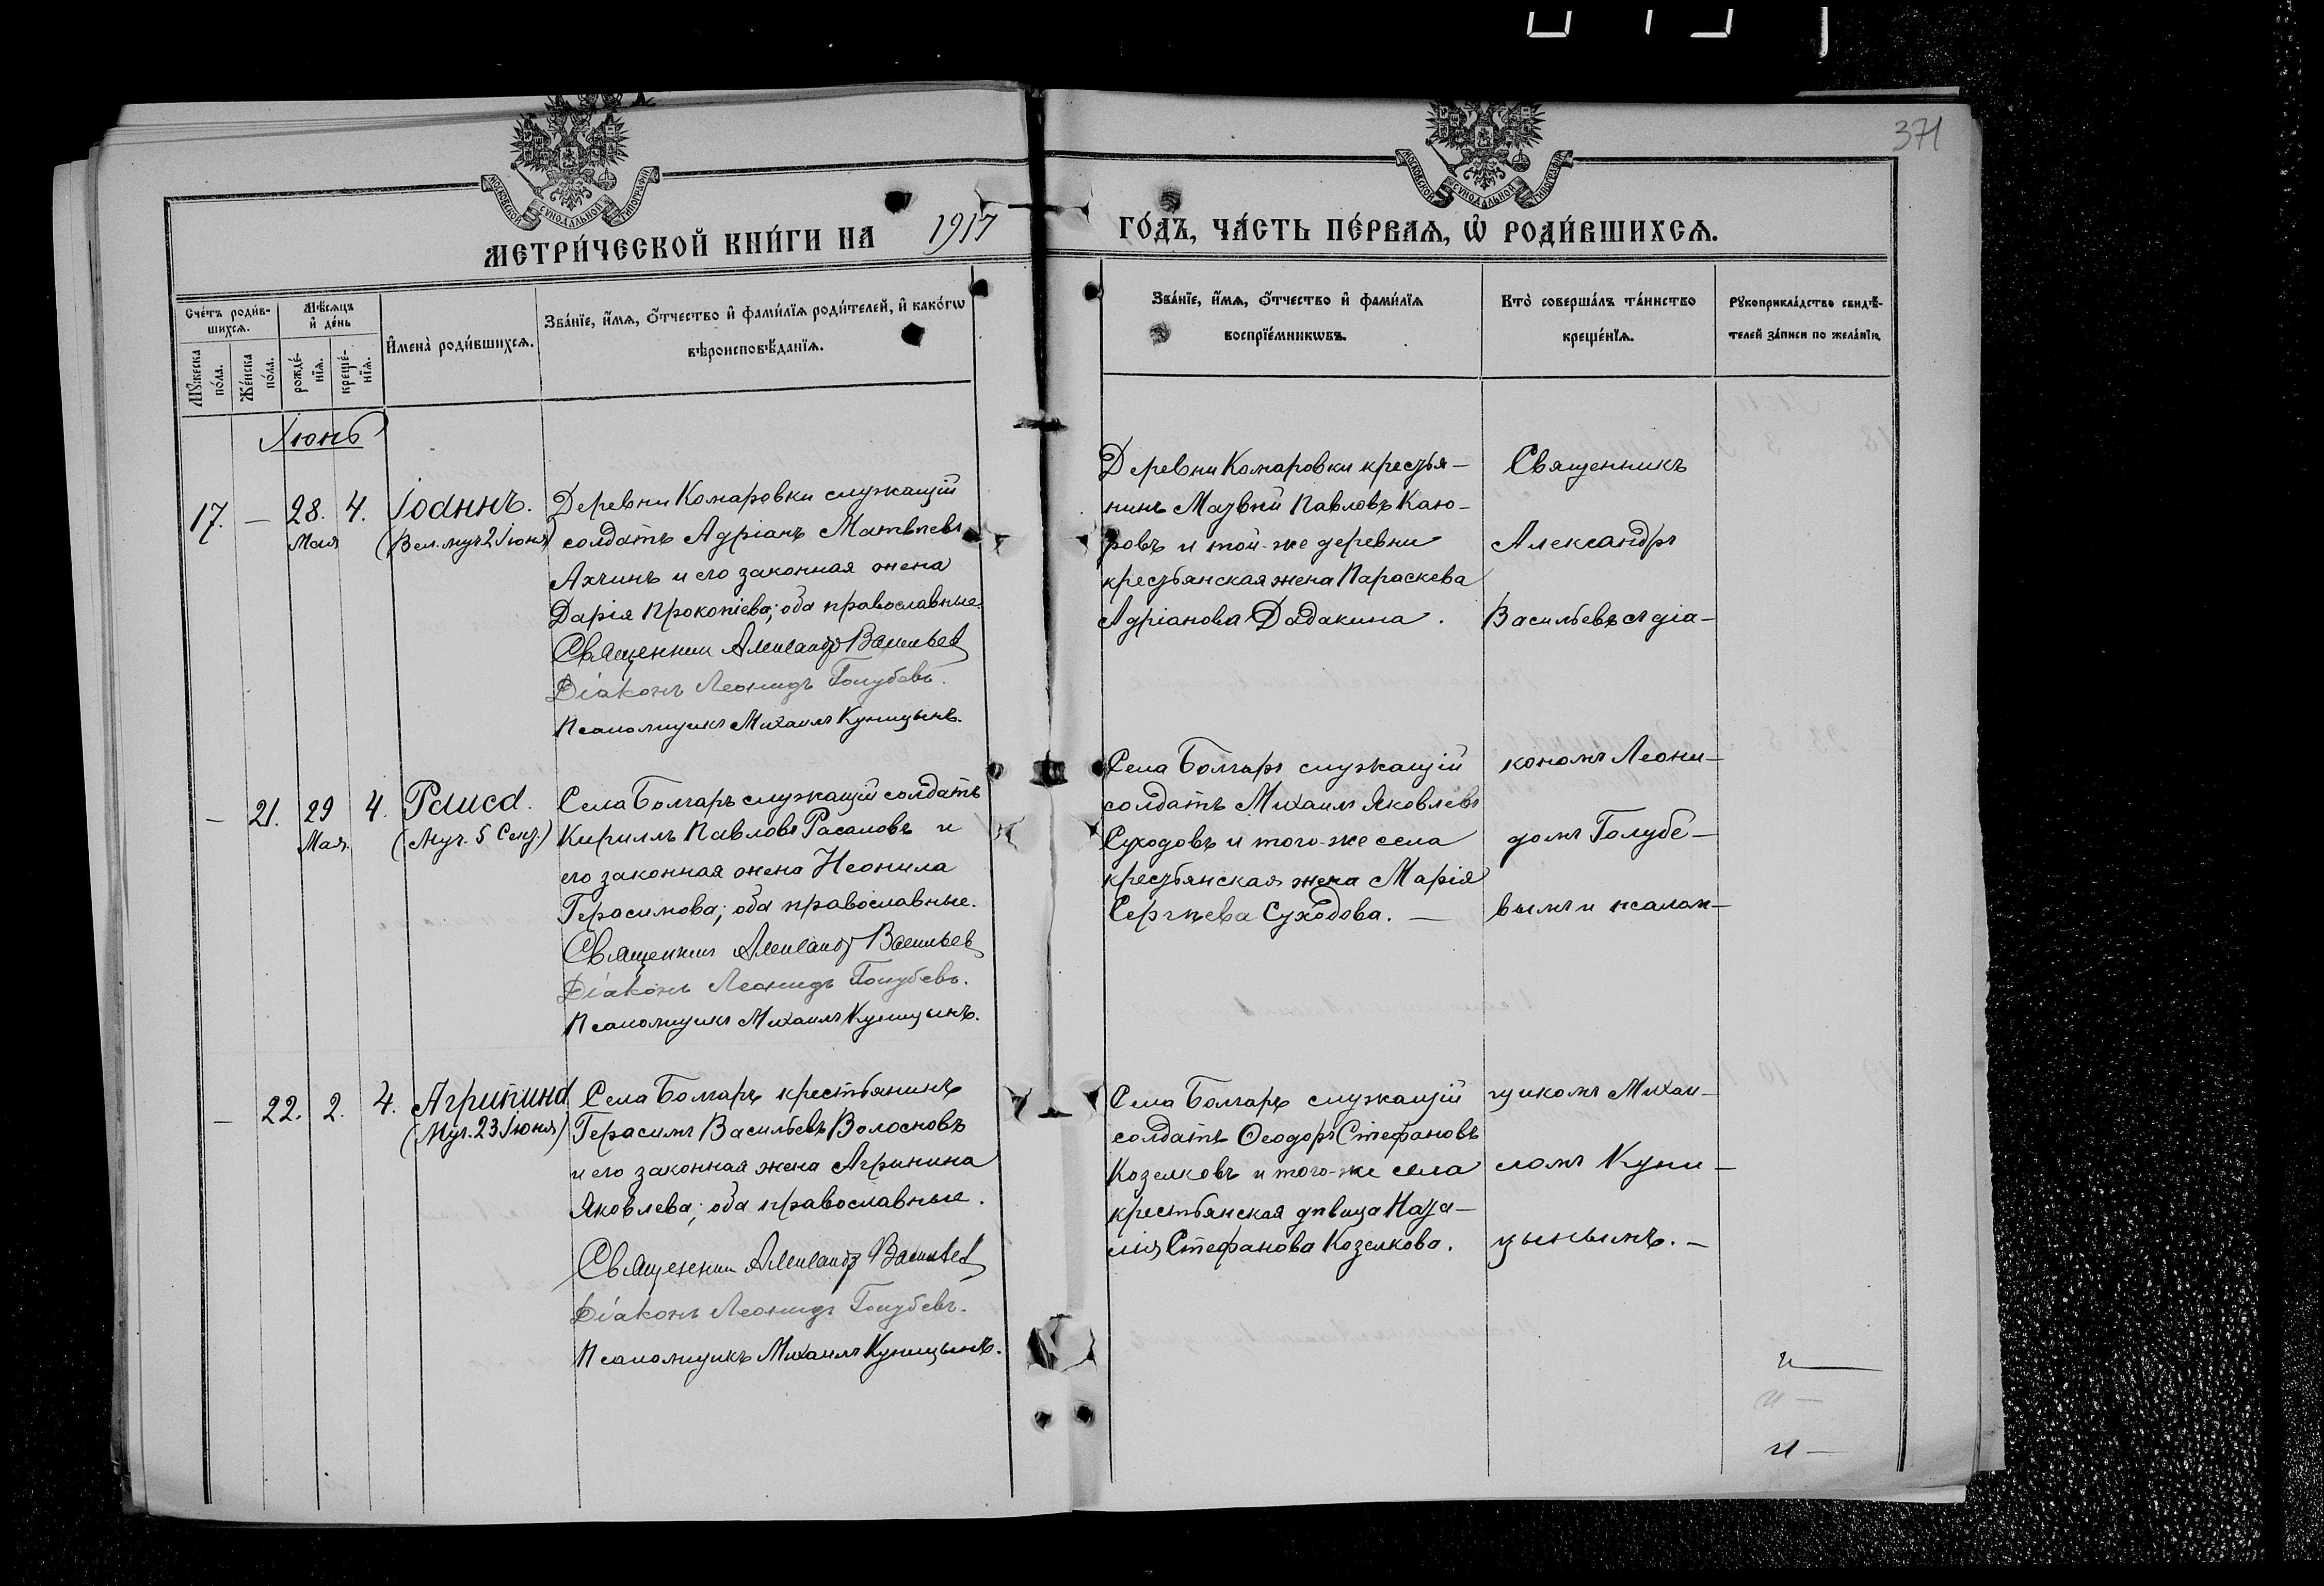 371
МОСКОВСКОЙ СѴНОДАЛЬНОЙ ТИПОГРАФІИ
МОСКОВСКОЙ СѴНОДАЛЬНОЙ ТИПОГРАФІИ
МЕТРИ́ЧЕСКОЙ КНИ́ГИ НА 1917 ГО́ДЪ, ЧА́СТЬ ПЕ́РВАѦ, Ѡ҆ РОДИ́ВШИХСѦ.
Сче́тъ роди́в-
шихсѧ.
Мꙋ́жеска по́ла.
Же́нска по́ла.
Мѣ́сѧцъ и҆ де́нь
рожде́-
нїѧ.
креще́-
нїѧ.
И҆мена̀ роди́вшихсѧ.
Зва́нїе, и҆́мѧ, ѻ҆́тчество и҆ фами́лїѧ роди́телей, и҆ како́гѡ
вѣроисповѣ́данїѧ.
Зва́нїе, и҆́мѧ, ѻ҆́тчество и҆ фами́лїѧ
воспрїе́мникѡвъ.
Кто̀ соверша́лъ та́инство
креще́нїѧ.
Рꙋкоприкла́дство свидѣ́-
телей за́писи по жела́нїю.
Іюнь
17. — 28. 4. Іоаннъ.
Мая
(Вел. муч. 2 Іюня)
Деревни Комаровки служащій
солдатъ Адріанъ Матвѣевъ
Ахчинъ и его законная жена
Дарія Прокопіева; оба православные.
Священник Александр Васильев
Діаконъ Леонидъ Голубевъ.
Псаломщикъ Михаилъ Куницынъ.
Деревни Комаровки крестья-
нинъ Матвѣй Павловъ Каю-
ровъ и той-же деревни
крестьянская жена Параскева
Адріанова Дадакина.
Священникъ
Александръ
Васильевъ съ діа-
— 21. 29 4. Раиса.
Мая.
(Муч. 5 Сент.)
Села Болгаръ служащій солдатъ
Кириллъ Павловъ Расаловъ и
его законная жена Неонила
Герасимова; оба православные.
Священникъ Александр Васильев
Діаконъ Леонидъ Голубевъ.
Псаломщикъ Михаилъ Куницынъ.
Села Болгаръ служащій
солдатъ Михаилъ Яковлевъ
Суходовъ и того-же села
крестьянская жена Марія
Сергѣева Суходова. —
кономъ Леони-
домъ Голубе-
вымъ и псалом-
— 22. 2. 4. Агрипина
(Муч. 23 Іюня)
Села Болгаръ крестьянинъ
Герасимъ Васильевъ Волосновъ
и его законная жена Агрипина
Яковлева; оба православные.
Священник Александр Васильев
Діаконъ Леонидъ Голубевъ.
Псаломщикъ Михаилъ Куницынъ.
Села Болгаръ служащій
солдатъ Ѳеодоръ Стефановъ
Козелковъ и того-же села
крестьянская дѣвица Ната-
лія Стефанова Козелкова.
щикомъ Михаи-
ломъ Куни-
цынымъ. —